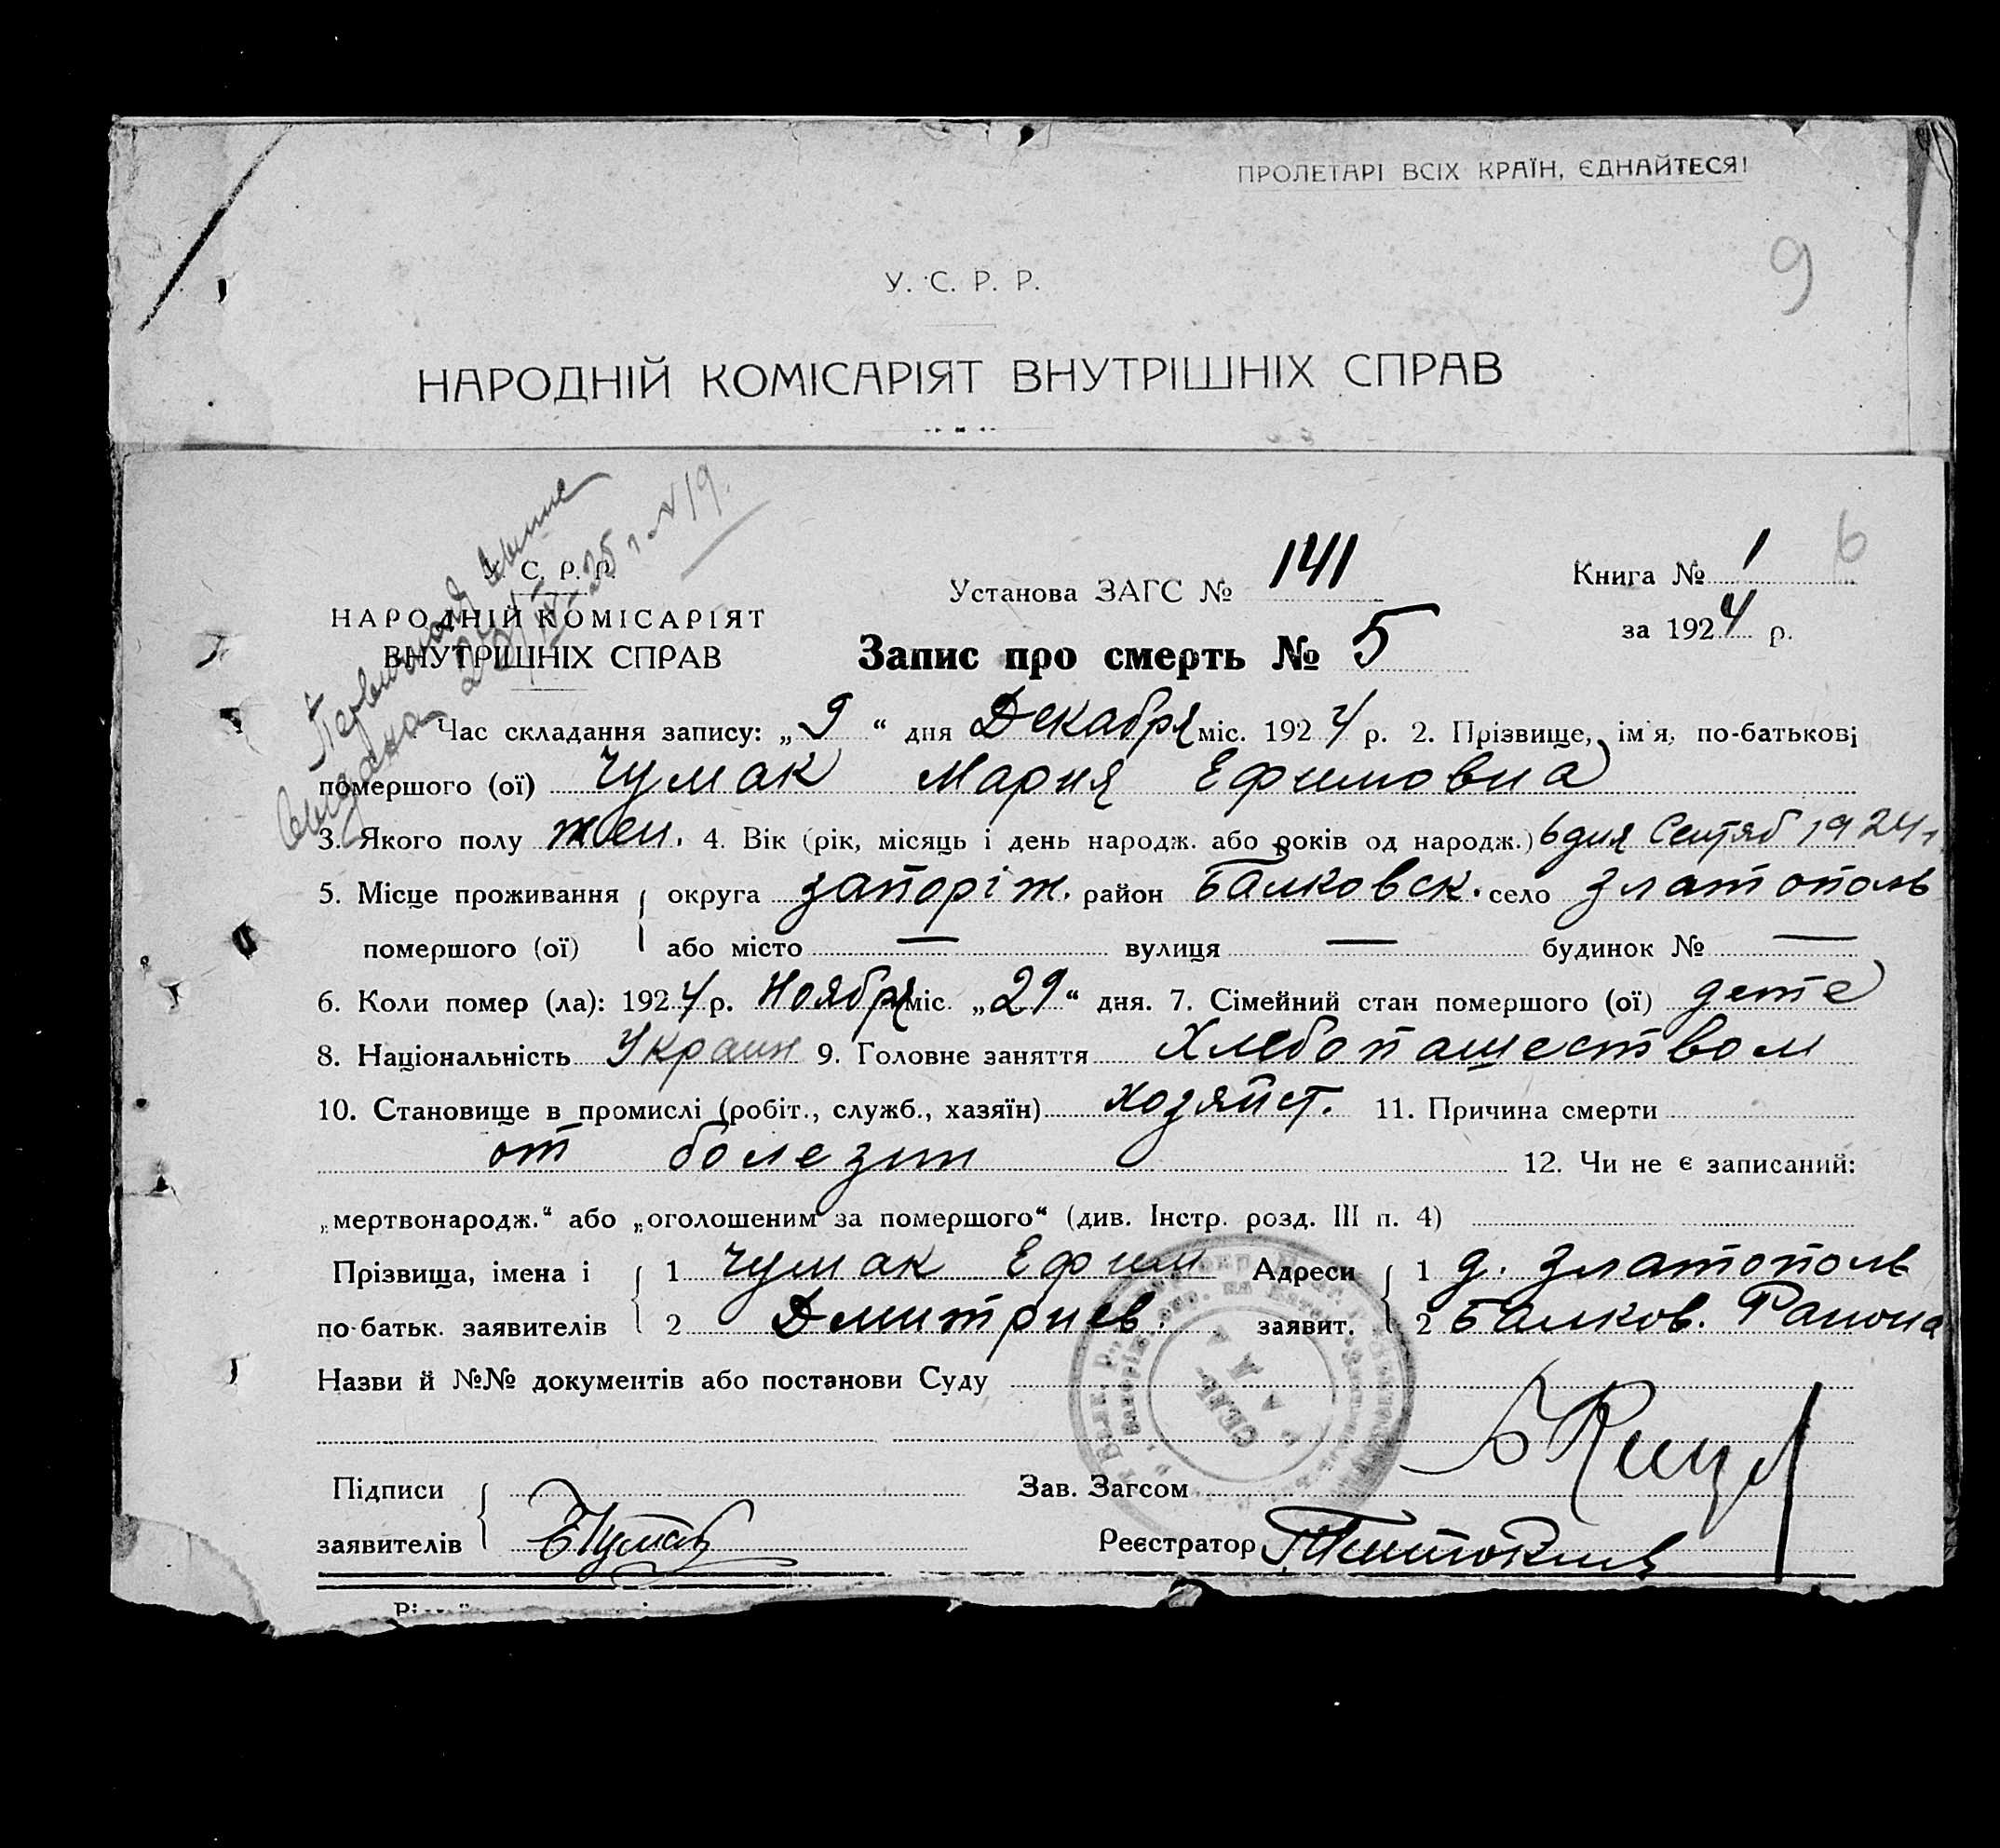 ПРОЛЕТАРІ ВСІХ КРАЇН, ЄДНАЙТЕСЯ!
9
У. С. Р. Р.
НАРОДНІЙ КОМІСАРІЯТ ВНУТРІШНІХ СПРАВ
6
У. С. Р. Р.
НАРОДНІЙ КОМІСАРІЯТ
ВНУТРІШНІХ СПРАВ
выдана 25 г. N 19.
Установа ЗАГС № 141
Книга № 1
за 1924 р.
Запис про смерть № 5
Час складання запису: „9“ дня Декабря міс. 1924 р. 2. Прізвище, ім'я, по-батькові
помершого (ої) Чумак Мария Ефимовна
3. Якого полу жен. 4. Вік (рік, місяць і день народж. або років од народж.) 6 дня Сентяб 1924 г.
5. Місце проживання округа Запоріж. район Балковск. село Златополь
помершого (ої) або місто — вулиця — будинок № —
6. Коли помер (ла): 1924 р. Ноября міс. „29“ дня. 7. Сімейний стан помершого (ої) дете
8. Національність Украин 9. Головне заняття Хлебопашеством
10. Становище в промислі (робіт., служб., хазяїн) хозяйст. 11. Причина смерти
от болезни 12. Чи не є записаний:
„мертвонародж.“ або „оголошеним за помершого“ (див. Інстр. розд. III п. 4)
Прізвища, імена і 1 Чумак Ефим Адреси 1 д. Златополь
по-батьк. заявителів 2 Дмитриев. заявит. 2 Балков. Района
Назви й №№ документів або постанови Суду
Підписи Зав. Загсом
заявителів Е Чумак Реєстратор